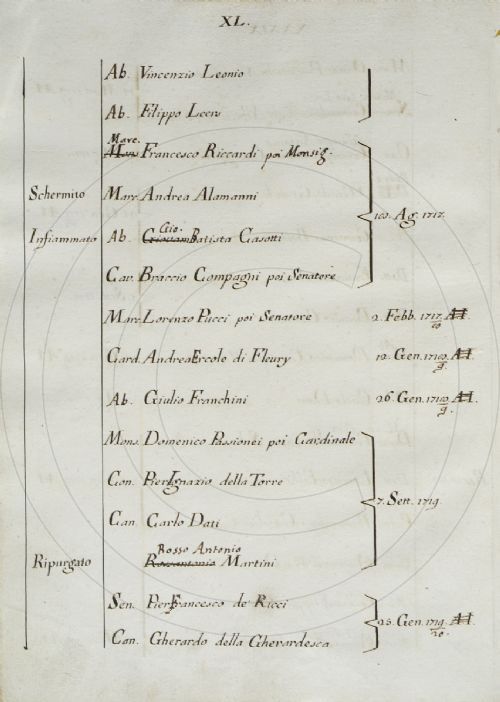 XL.
Ab. Vincenzio Leonio
Ab. Filippo Leers
Marc.
Mons. Francesco Riccardi poi Monsig.
Schermito Marc. Andrea Alamanni
Ag. 1717.
Gio.
Infiammato Ab. Giovam Batista Casotti
Cav. Braccio Compagni poi Senatore
Marc. Lorenzo Pucci poi Senatore 2. Febb. 1717/18
Card. Andrea Ercole di Fleury 12. Gen. 1718/9.
Ab. Giulio Franchini 26. Gen. 1718/9.
Mons. Domenico Passionei poi Cardinale
Con. Pier Ignazio della Torre
7. Sett. 1719.
Can. Carlo Dati
Rosso Antonio
Ripurgato Rossantonio Martini
Sen. Pier Francesco de' Ricci
25. Gen. 1719/20.
Can. Gherardo della Gherardesca